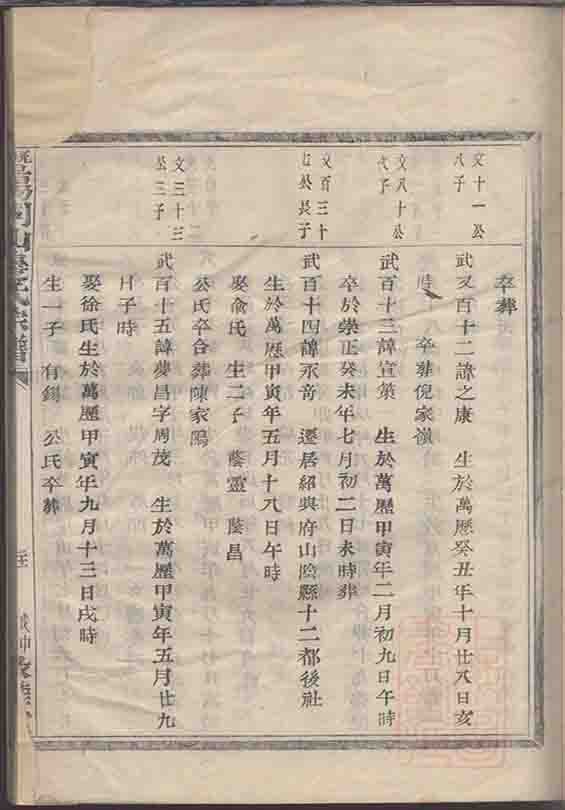 卒葬
文十一公
八子
武又百十二諱之康 生於萬歷癸丑年十月廿八日亥
時 卒葬倪家嶺
文八十公
武百十三諱宣策 生於萬歷甲寅年二月初九日午時
卒於崇正癸未年七月初二日未時葬
文百三十
七公長子
武百十四諱永奇 遷居紹興府山陰縣十二都後社
生於萬歷甲寅年五月十八日午時
娶俞氏 生二子 蔭靈 蔭昌
公氏卒合葬陳家塢
文三十三
公三子
武百十五諱 昌字周茂 生於萬歷甲寅年五月廿九
日子時
娶徐氏生於萬歷甲寅年九月十三日戌時
生一子 有錫 公氏卒葬
宗譜